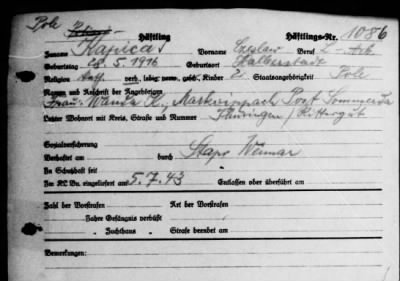 Pole Häftling Häftlings-Nr. 1086
Zuname Kapica Vorname Czeslaw Beruf L-Arb
Geburtstag 28.5.1916 Geburtsort Halberstadt
Religion kath. verh., ledig, verw., gesch., Kinder 2 Staatsangehörigkeit Pole
Namen und Anschrift der Angehörigen
Frau: Wanda K., Markvippach Post Sömmerda
Letzter Wohnort mit Kreis, Straße und Nummer Thüringen / Rittergut
Sozialversicherung
Verhaftet am durch Stapo Weimar
In Schutzhaft seit
Ins KL Bu. eingeliefert am 5.7.43 Entlassen oder überführt am
Zahl der Vorstrafen Art der Vorstrafen
Jahre Gefängnis verbüßt
" Zuchthaus Strafe beendet am
Bemerkungen: